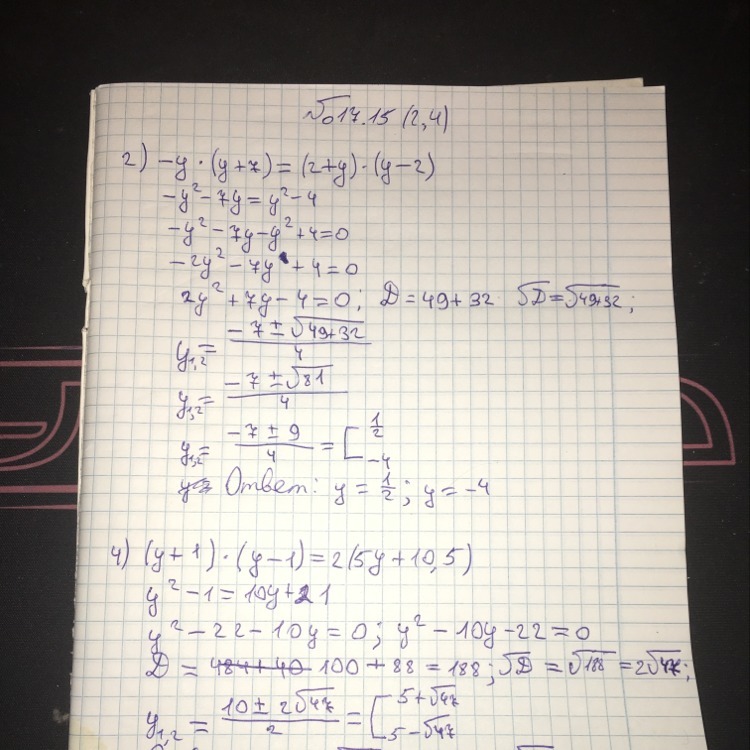 №17.15 (2,4)
2) -y·(y+7)=(2+y)·(y-2)
-y²-7y=y²-4
-y²-7y-y²+4=0
-2y²-7y+4=0
2y²+7y-4=0; D=49+32 √D=√49+32;
y₁,₂= (-7±√49+32)/4
y₁,₂= (-7±√81)/4
y₁,₂= (-7±9)/4 = [ 1/2 -4
Ответ: y=1/2; y=-4
4) (y+1)·(y-1)=2(5y+10,5)
y²-1=10y+21
y²-22-10y=0; y²-10y-22=0
D=484+40 100+88=188; √D=√188=2√47;
y₁,₂= (10±2√47)/2 = [ 5+√47 5-√47